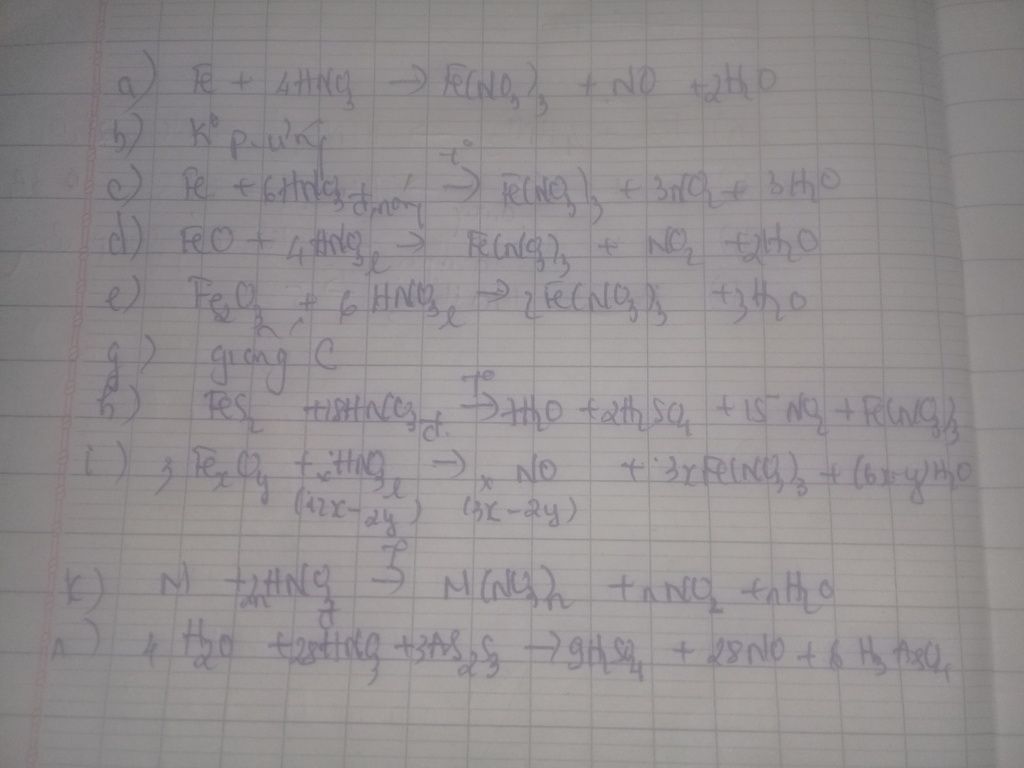 a) Fe + 4HNO3 → Fe(NO3)3 + NO + 2H2O
b) K°
c) Fe + 6HNO3 đ, nóng t° → Fe(NO3)3 + 3NO2 + 3H2O
d) FeO + 4HNO3 l → Fe(NO3)3 + NO2 + 2H2O
e) Fe2O3 + 6HNO3 l → 2Fe(NO3)3 + 3H2O
g) giống C
h) FeS2 + 18HNO3 đ. T° → 7H2O + 2H2SO4 + 15NO2 + Fe(NO3)3
i) 3FexOy + HNO3 l → NO + 3xFe(NO3)3 + (6x-y)H2O
(12x-2y) (3x-2y)
k) M + 2nHNO3 đ T° → M(NO3)n + nNO2 + nH2O
n) 4H2O + 28HNO3 + 3As2S3 → 9H2SO4 + 28NO + 6H3AsO4